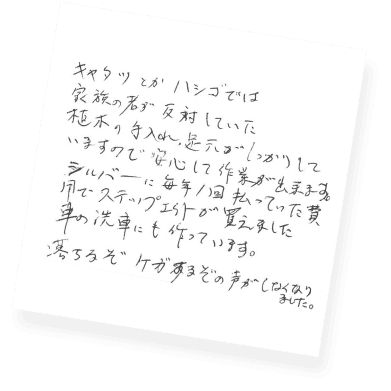 キャタツとかハシゴでは
家族の者が反対していた
植木の手入れ、足元がしっかりして
いますので安心して作業が出来ます。
シルバーに毎年1回払っていた費
用でステップエイトが買えました
車の洗車にも作っています。
落ちるぞケガするぞの声がしなくなり
ました。